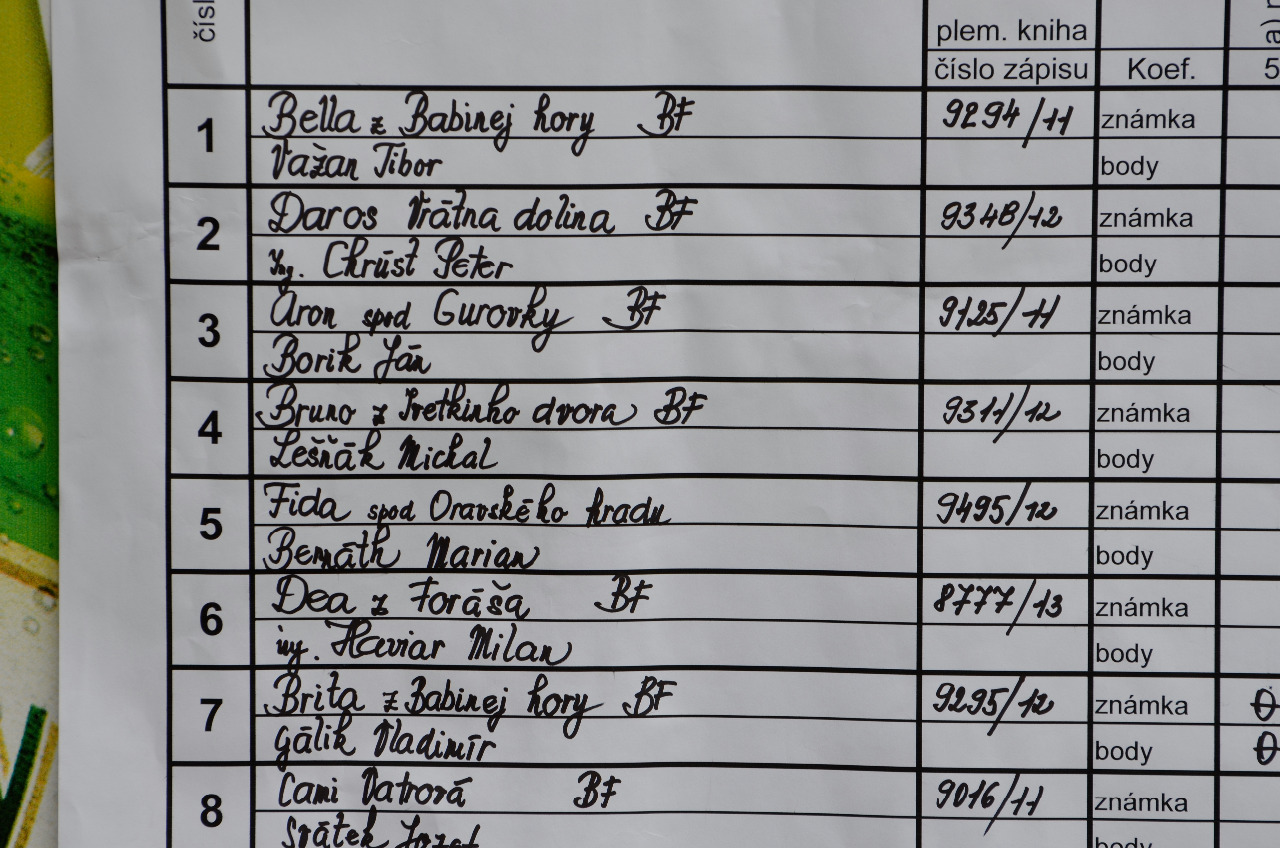 čísl
plem. kniha
číslo zápisu Koef. 5
1 Bella z Babinej hory BF 9294/11 známka
Važan Tibor body
2 Daros Vrátna dolina BF 9348/12 známka
Ing. Chrúst Peter body
3 Aron spod Gurovky BF 9125/11 známka
Borik Ján body
4 Bruno z Ivetkinho dvora BF 9311/12 známka
Lešňák Michal body
5 Fida spod Oravského hradu 9495/12 známka
Bernáth Marian body
6 Dea z Foráša BF 8777/13 známka
ing. Haviar Milan body
7 Brita z Babinej hory BF 9295/12 známka 0
Gálik Vladimír body 0
8 Cami Vatrová BF 9016/11 známka
Svátek Jozef body